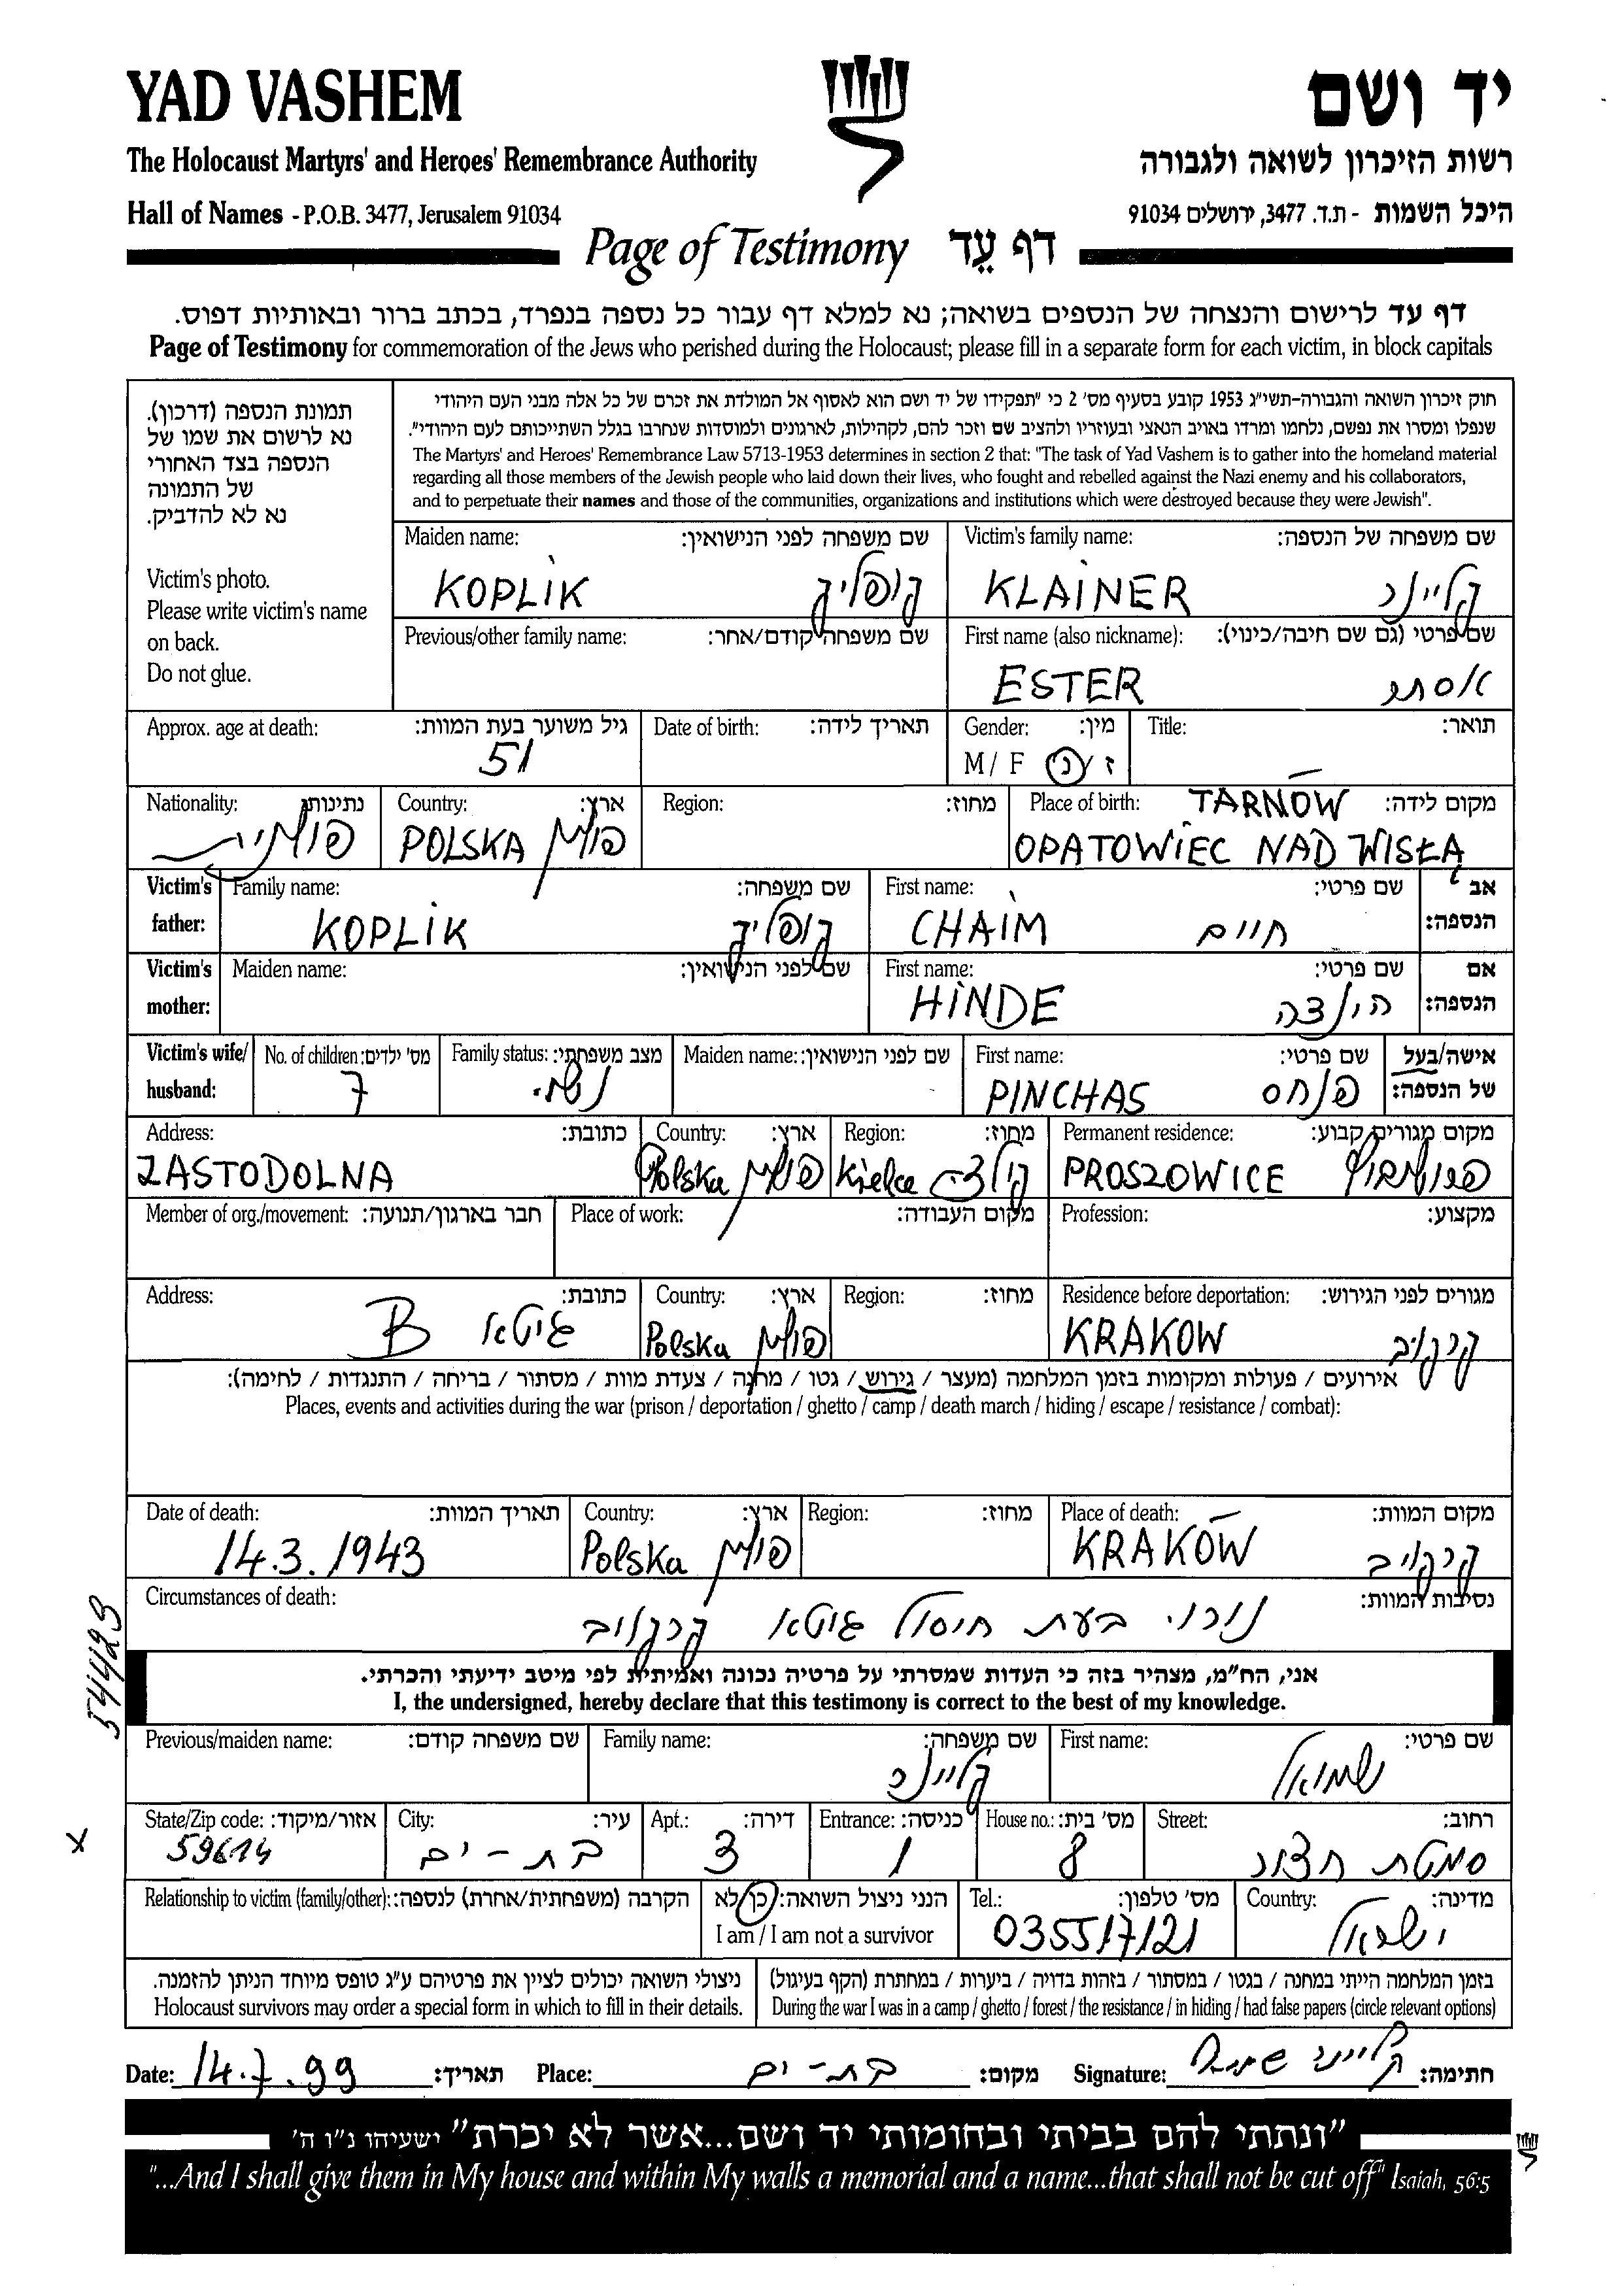 YAD VASHEM
יד ושם
The Holocaust Martyrs' and Heroes' Remembrance Authority
רשות הזיכרון לשואה ולגבורה
Hall of Names - P.O.B. 3477, Jerusalem 91034
היכל השמות - ת.ד. 3477, ירושלים 91034
Page of Testimony דף עֵד
דף עד לרישום והנצחה של הנספים בשואה; נא למלא דף עבור כל נספה בנפרד, בכתב ברור ובאותיות דפוס.
Page of Testimony for commemoration of the Jews who perished during the Holocaust; please fill in a separate form for each victim, in block capitals
תמונת הנספה (דרכון).
נא לרשום את שמו של
הנספה בצד האחורי
של התמונה
נא לא להדביק.
Victim's photo.
Please write victim's name
on back.
Do not glue.
חוק זיכרון השואה והגבורה-תשי"ג 1953 קובע בסעיף מס' 2 כי "תפקידו של יד ושם הוא לאסוף אל המולדת את זכרם של כל אלה מבני העם היהודי
שנפלו ומסרו את נפשם, נלחמו ומרדו באויב הנאצי ובעוזריו ולהציב שם וזכר להם, לקהילות, לארגונים ולמוסדות שנחרבו בגלל השתייכותם לעם היהודי".
The Martyrs' and Heroes' Remembrance Law 5713-1953 determines in section 2 that: "The task of Yad Vashem is to gather into the homeland material
regarding all those members of the Jewish people who laid down their lives, who fought and rebelled against the Nazi enemy and his collaborators,
and to perpetuate their names and those of the communities, organizations and institutions which were destroyed because they were Jewish".
Maiden name: שם משפחה לפני הנישואין: Victim's family name: שם משפחה של הנספה:
KOPLIK קופליק KLAINER קליינר
Previous/other family name: שם משפחה קודם/אחר: First name (also nickname): שם פרטי (גם שם חיבה/כינוי):
ESTER אסתר
Approx. age at death: גיל משוער בעת המוות: Date of birth: תאריך לידה: Gender: מין: Title: תואר:
51 M / F ז / נ —
Nationality: נתינות: Country: ארץ: Region: מחוז: Place of birth: TARNÓW מקום לידה:
פולניה POLSKA פולין OPATOWIEC NAD WISŁĄ
Victim's Family name: שם משפחה: First name: שם פרטי: אב
father: KOPLIK קופליק CHAIM חיים הנספה:
Victim's Maiden name: שם לפני הנישואין: First name: שם פרטי: אם
mother: HINDE הינדה הנספה:
Victim's wife/ No. of children: מס' ילדים: Family status: מצב משפחתי: Maiden name: שם לפני הנישואין: First name: שם פרטי: אישה/בעל
husband: 7 נשוי PINCHAS פנחס של הנספה:
Address: כתובת: Country: ארץ: Region: מחוז: Permanent residence: מקום מגורים קבוע:
ZASTODOLNA Polska פולין Kielce קילצה PROSZOWICE
Member of org./movement: חבר בארגון/תנועה: Place of work: מקום העבודה: Profession: מקצוע:
Address: כתובת: Country: ארץ: Region: מחוז: Residence before deportation: מגורים לפני הגירוש:
B גיטא Polska פולין KRAKOW קרקוב
אירועים / פעולות ומקומות בזמן המלחמה (מעצר / גירוש / גטו / מחנה / צעדת מוות / מסתור / בריחה / התנגדות / לחימה):
Places, events and activities during the war (prison / deportation / ghetto / camp / death march / hiding / escape / resistance / combat):
Date of death: תאריך המוות: Country: ארץ: Region: מחוז: Place of death: מקום המוות:
14.3.1943 Polska פולין KRAKÓW קרקוב
Circumstances of death: נסיבות המוות:
נורתה בעת חיסול גיטא קרקוב
544423
אני, הח"מ, מצהיר בזה כי העדות שמסרתי על פרטיה נכונה ואמיתית לפי מיטב ידיעתי והכרתי.
I, the undersigned, hereby declare that this testimony is correct to the best of my knowledge.
Previous/maiden name: שם משפחה קודם: Family name: שם משפחה: First name: שם פרטי:
קליינר שמואל
State/Zip code: אזור/מיקוד: City: עיר: Apt.: דירה: Entrance: כניסה: House no.: מס' בית: Street: רחוב:
x
59614 בת-ים 3 1 8 סמטת
Relationship to victim (family/other): הקרבה (משפחתית/אחרת) לנספה: הנני ניצול השואה: כן/לא Tel.: מס' טלפון: Country: מדינה:
I am / I am not a survivor 035517121 ישראל
ניצולי השואה יכולים לציין את פרטיהם ע"ג טופס מיוחד הניתן להזמנה.
Holocaust survivors may order a special form in which to fill in their details.
בזמן המלחמה הייתי במחנה / בגטו / במסתור / בזהות בדויה / ביערות / במחתרת (הקף בעיגול)
During the war I was in a camp / ghetto / forest / the resistance / in hiding / had false papers (circle relevant options)
Date: 14.7.99 תאריך: Place: בת-ים מקום: Signature: קליינר שמואל חתימה:
"ונתתי להם בביתי ובחומותי יד ושם...אשר לא יכרת" ישעיהו נ"ו ה'
"...And I shall give them in My house and within My walls a memorial and a name...that shall not be cut off" Isaiah, 56:5